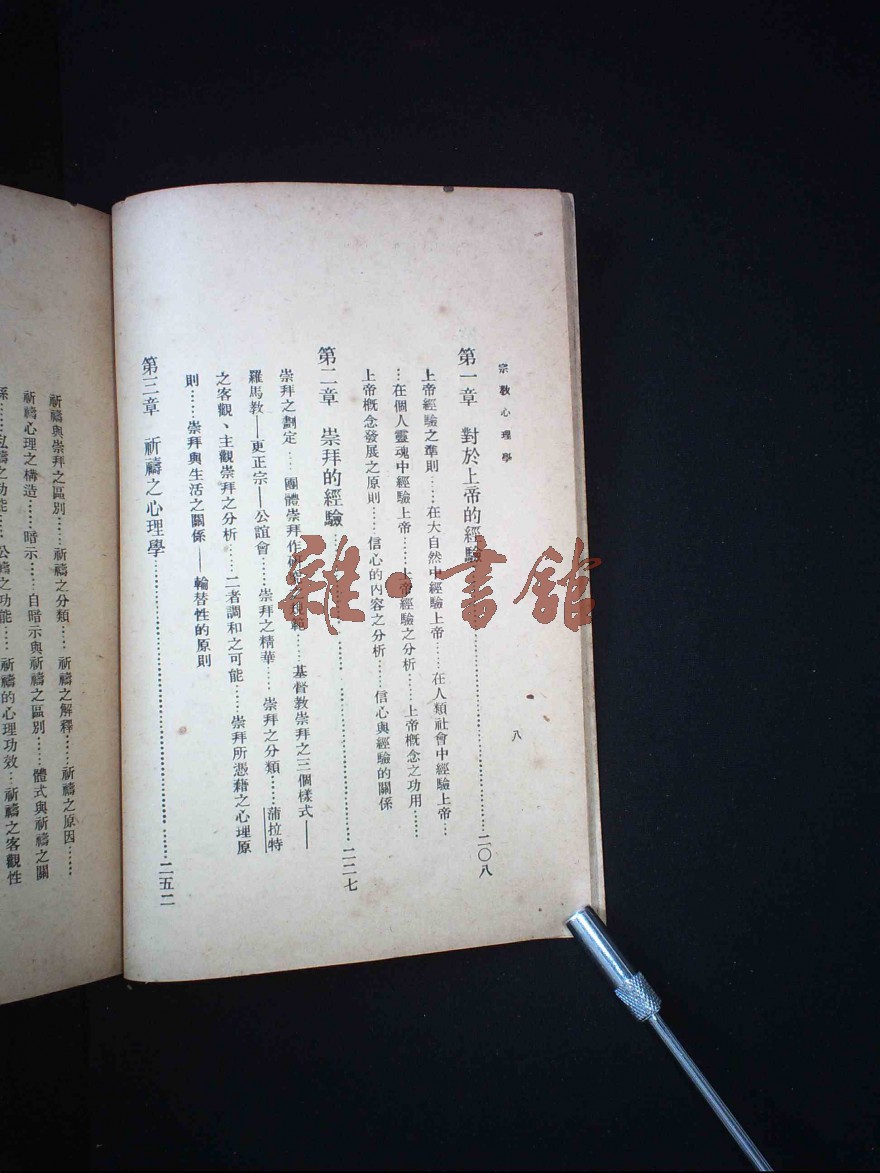 宗教心理學
八
第一章 對於上帝的經驗……二〇八
上帝經驗之準則……在大自然中經驗上帝……在人類社會中經驗上帝…
…在個人靈魂中經驗上帝……上帝經驗之分析……上帝概念之功用……
上帝概念發展之原則……信心的內容之分析……信心與經驗的關係
第二章 崇拜的經驗……二二七
崇拜之劃定……團體崇拜作 範……基督教崇拜之三個樣式——
羅馬教——更正宗——公誼會……崇拜之精華……崇拜之分類……蒲拉特
之客觀、主觀崇拜之分析……二者調和之可能……崇拜所憑藉之心理原
則……崇拜與生活之關係——輪替性的原則
第三章 祈禱之心理學……二五二
祈禱與崇拜之區別……祈禱之分類……祈禱之解釋……祈禱之原因……
祈禱心理之構造……暗示……自暗示與祈禱之區別……體式與祈禱之關
係……私禱之功能……公禱之功能……祈禱的心理功效…祈禱之客觀性
雜·書館